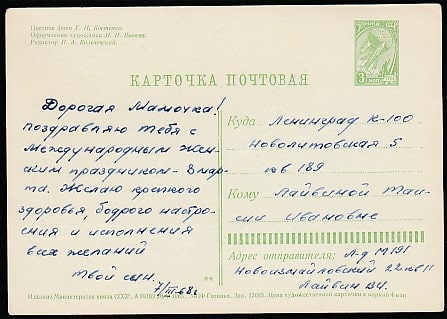 Цветное фото Г. И. Костенко
Оформление художника П. П.
Редактор П. А.
КАРТОЧКА ПОЧТОВАЯ
3
Дорогая Мамочка!
поздравляю тебя с
Международным Жен-
ским праздником - 8 мар-
та. Желаю крепкого
здоровья, бодрого настро-
ения и исполнения
всех желаний
Твой сын.
7/III-68г.
Куда Ленинград К-100
Новолитовская 5
кв 189
Кому Лайвиной Таи-
сии Ивановне
Адрес отправителя: Л-д М191
Новоизмайловский 22 кв 11
Лайвин В.Ч.
Издание Министерства связи СССР. 1965. Гознака. Зак. 12085. Цена художественной карточки с маркой 4 коп